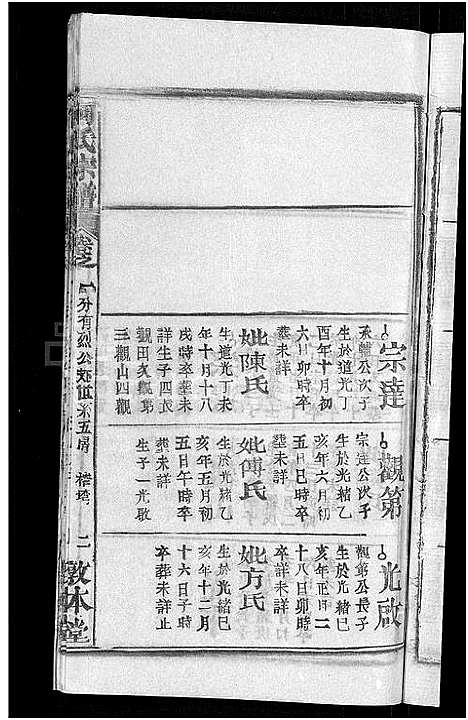 宗達
承輔公次子
生於道光丁
酉年十月初
六日卯時卒
葬未詳
妣陳氏
生道光丁未
年十月十八
戌時卒葬未
詳生子四長
觀田次觀第
三觀山四觀
觀第
宗達公次子
生於光緒乙
亥年六月初
五日巳時卒
葬未詳
妣傅氏
生於光緒乙
亥年五月初
五日午時卒
葬未詳
生子一光啟
光啟
觀第公長子
生於光緒巳
亥年正月二
十八日卯時
卒詳未詳
妣方氏
生於光緒巳
亥年十二月
十六日子時
卒葬未詳止
氏宗譜
卷之
分有烈公
五房
二
敦本堂